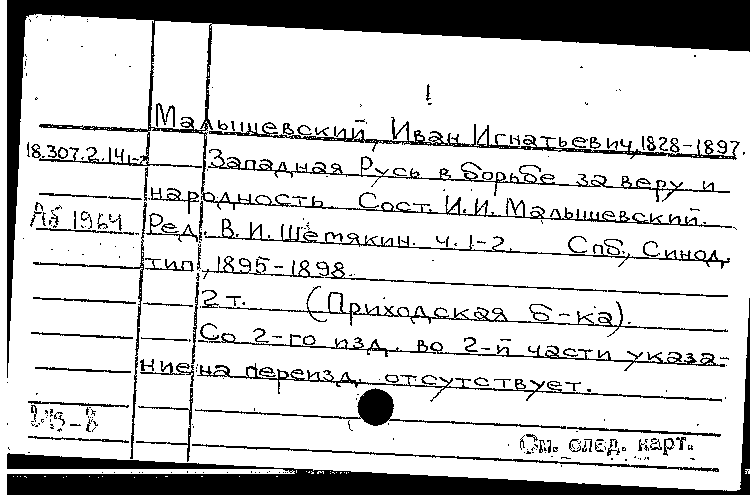 1
Малышевский, Иван Игнатьевич, 1828-1897.
18.307.2.14 1-2 Западная Русь в борьбе за веру и
народность. Сост. И.И. Малышевский.
Аб 1964 Ред. В.И. Шемякин. ч. 1-2. Спб., Синод.
тип., 1895-1898.
2 т. (Приходская б-ка).
Со 2-го изд. во 2-й части указа-
ние на переизд. отсутствует.
См. след. карт.